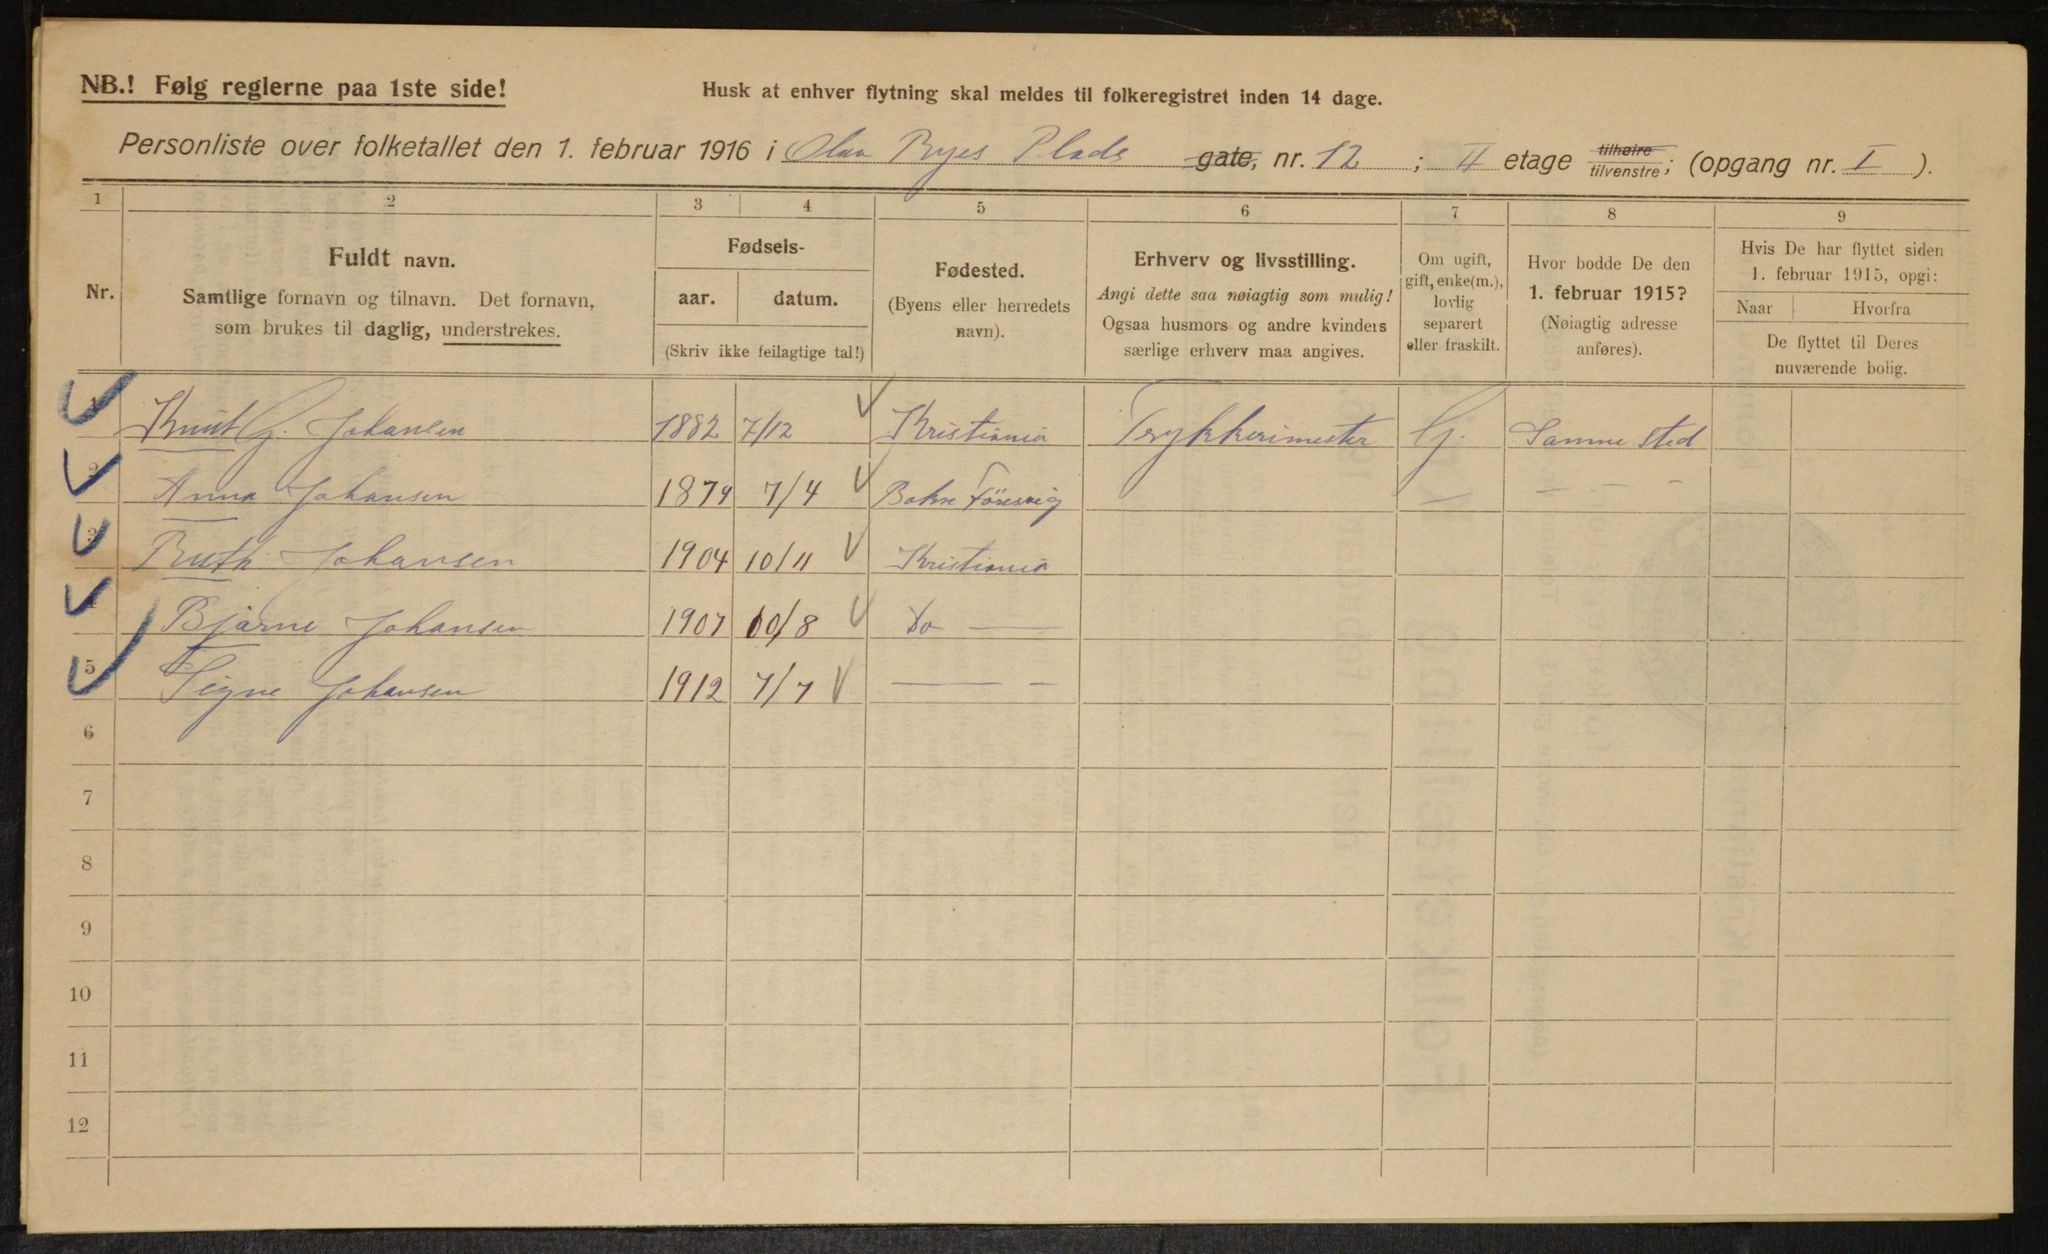 NB.! Følg reglerne paa 1ste side!
Husk at enhver flytning skal meldes til folkeregistret inden 14 dage.
Personliste over folketallet den 1. februar 1916 i Olav Ryes Plads gate, nr. 12 ; II etage tilhøire tilvenstre; (opgang nr. I ).
1 2 3 4 5 6 7 8 9
Nr.
Fuldt navn.
Samtlige fornavn og tilnavn. Det fornavn,
som brukes til daglig, understrekes.
Fødsels-
aar. datum.
(Skriv ikke feilagtige tal!)
Fødested.
(Byens eller herredets
navn).
Erhverv og livsstilling.
Angi dette saa nøiagtig som mulig!
Ogsaa husmors og andre kvinders
særlige erhverv maa angives.
Om ugift,
gift, enke(m.),
lovlig
separert
eller fraskilt.
Hvor bodde De den
1. februar 1915?
(Nøiagtig adresse
anføres).
Hvis De har flyttet siden
1. februar 1915, opgi:
Naar Hvorfra
De flyttet til Deres
nuværende bolig.
1 Knut G. Johansen 1882 7/12 Kristiania Trykkerimester G. Samme sted
2 Anna Johansen 1879 7/4 — — — —
3 Ruth Johansen 1904 10/11 Kristiania
4 Bjarne Johansen 1907 10/8 Do —
5 Signe Johansen 1912 7/7 — —
6
7
8
9
10
11
12